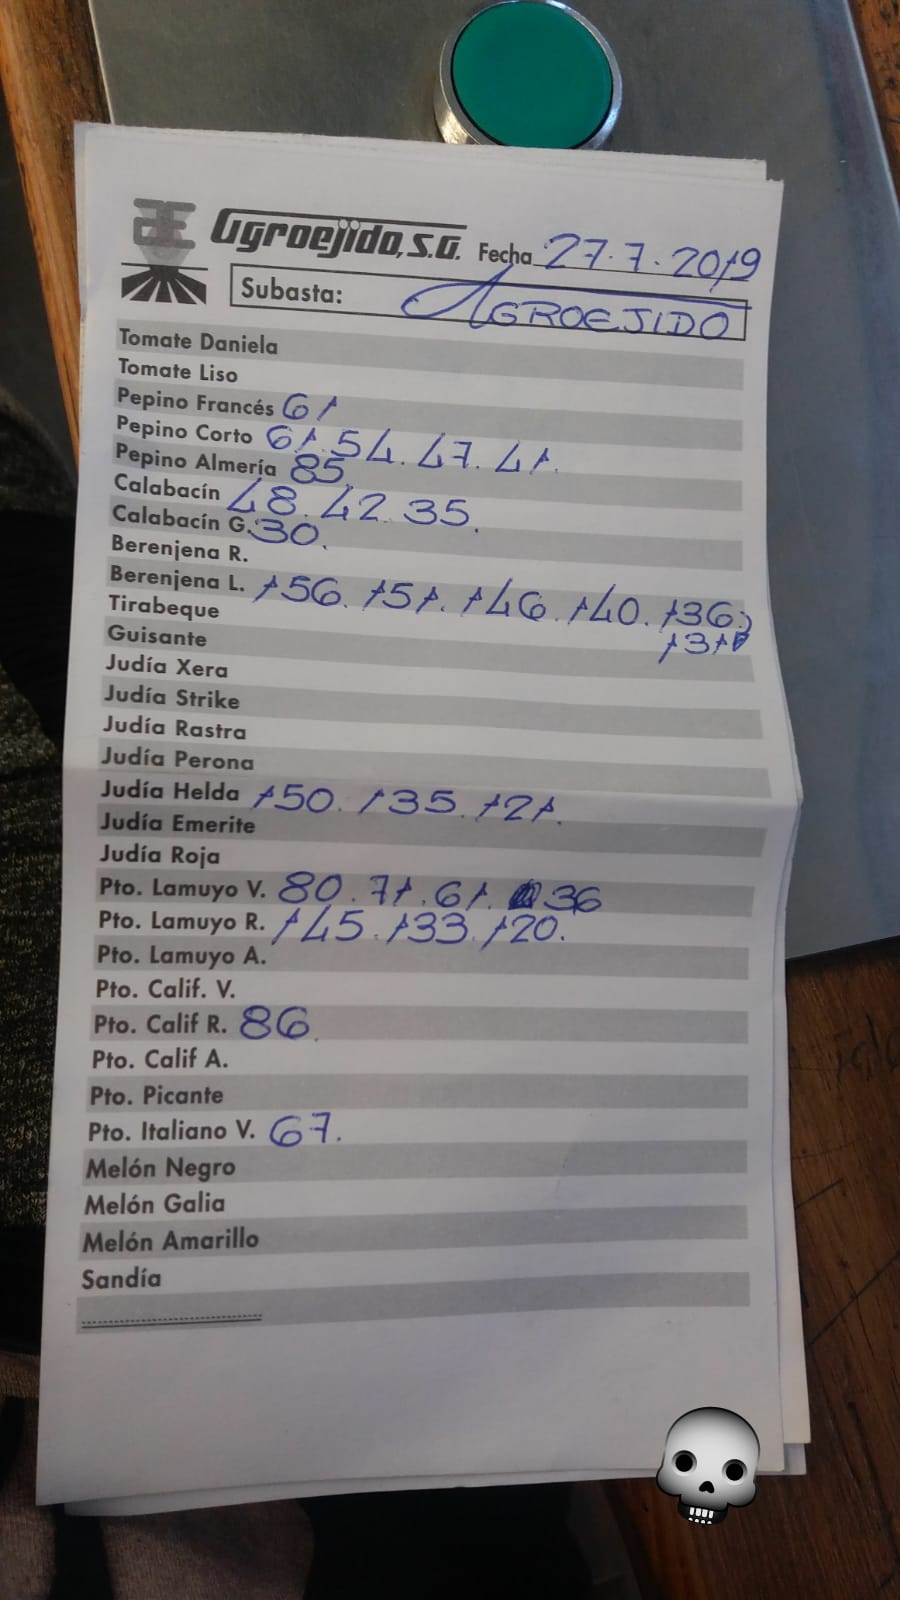 Agroejido, S.A. Fecha 27.7.2019
Subasta: AGROEJIDO
Tomate Daniela
Tomate Liso
Pepino Francés 61
Pepino Corto 61.54.47.41.
Pepino Almería 85.
Calabacín 48.42.35.
Calabacín G. 30.
Berenjena R.
Berenjena L. 156. 151. 146. 140. 136.
Tirabeque 131
Guisante
Judía Xera
Judía Strike
Judía Rastra
Judía Perona
Judía Helda 150. 135. 121.
Judía Emerite
Judía Roja
Pto. Lamuyo V. 80.71.61. 36
Pto. Lamuyo R. 145.133.120.
Pto. Lamuyo A.
Pto. Calif. V.
Pto. Calif R. 86.
Pto. Calif A.
Pto. Picante
Pto. Italiano V. 67.
Melón Negro
Melón Galia
Melón Amarillo
Sandía